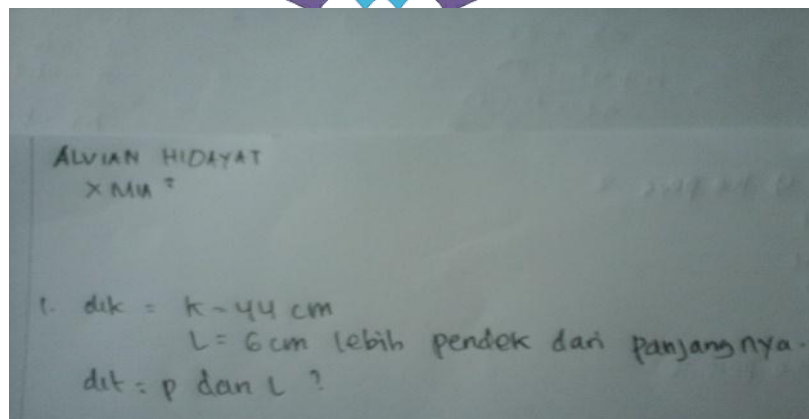 ALVIAN HIDAYAT
X MIA
1. dik = K = 44 cm
L = 6 cm lebih pendek dari panjangnya.
dit = p dan L ?